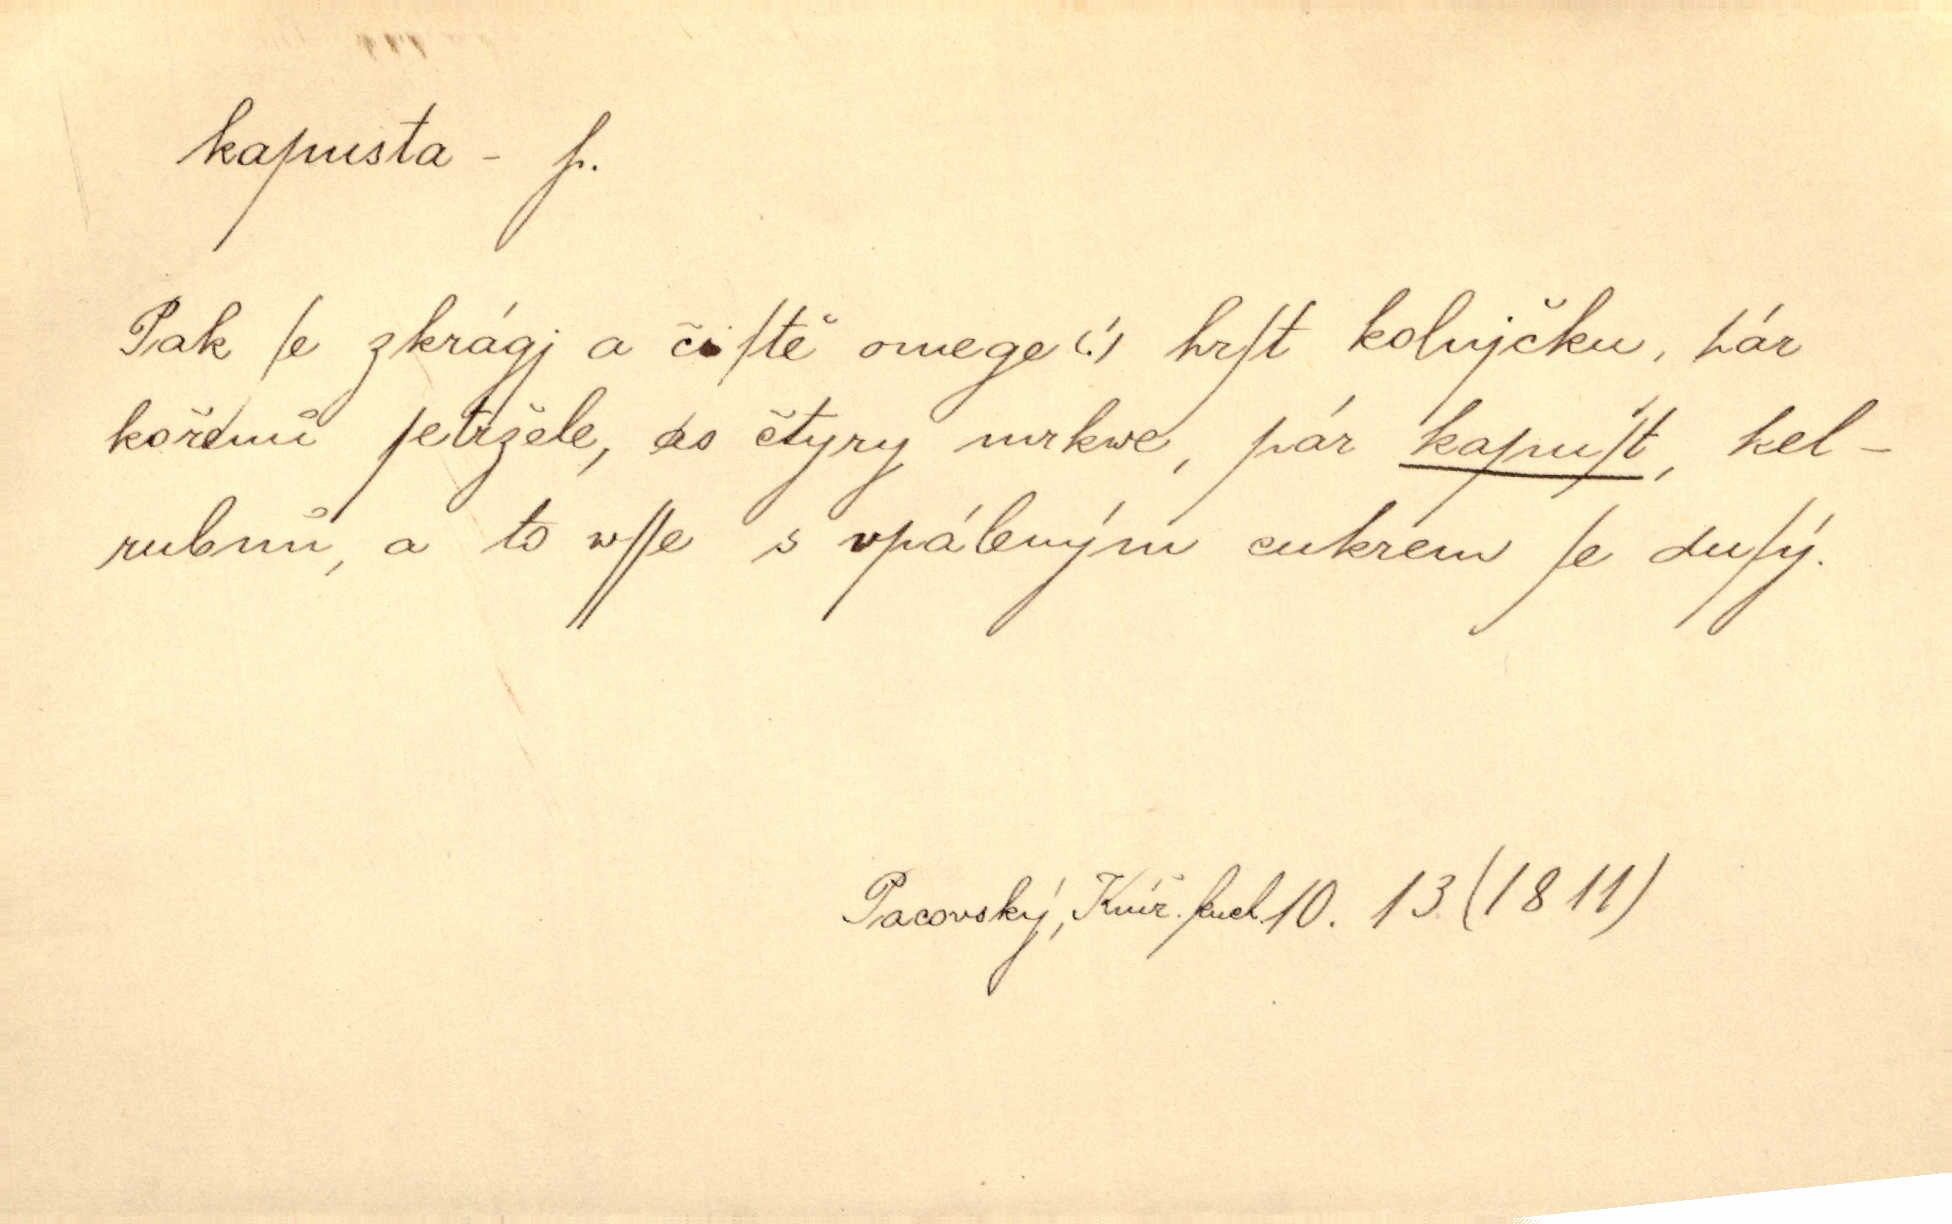 kapusta - f.
Pak ſe zkrágj a čiſtě omege (!) hrſt kolnjčku, pár
kořenů petržele, as čtyry mrkwe, pár kapuſt, kel-
rubnů, a to wſſe s vpáleným cukrem ſe duſý.
Pacovský, Kníž. kuch. 10. 13 (1811)